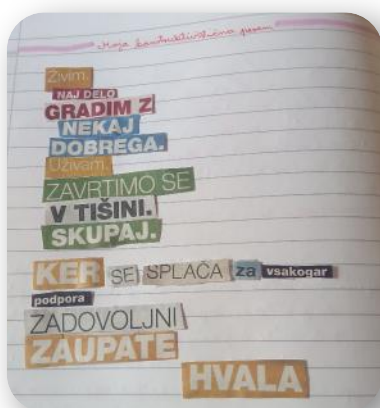 Moja konstruktivistična pesem
Živim.
NAJ DELO
GRADIM Z
NEKAJ
DOBREGA.
Uživam.
ZAVRTIMO SE
V TIŠINI.
SKUPAJ.
KER SE SPLAČA za vsakogar
podpora
ZADOVOLJNI
ZAUPATE
HVALA